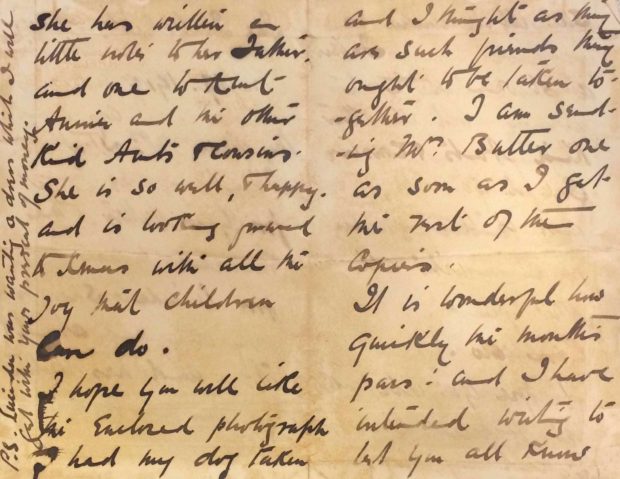 She has written a
little notes to her Father.
and one to Aunt
Annie and the other
Kind Aunts & Cousins.
She is so well, & happy.
and is looking forward
to Xmas with all the
joy that children
can do.
I hope you will like
the Enclosed photograph
I had my dog taken
and I thought as they
are such friends they
ought to be taken to-
-gether. I am send-
-ing Mrs. Butter one
as soon as I get
the rest of the
Copies.
It is wonderful how
quickly the months
pass! and I have
intended writing to
let you all know
P.S. was wanting a dress which I will
get with your present of money.